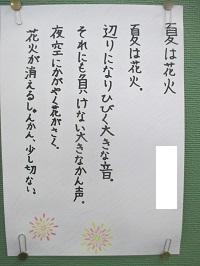 夏は花火
夏は花火。
辺りになりひびく大きな音。
それにも負けない大きなかん声。
夜空にかがやく花がさく。
花火が消えるしゅんかん、少し切ない